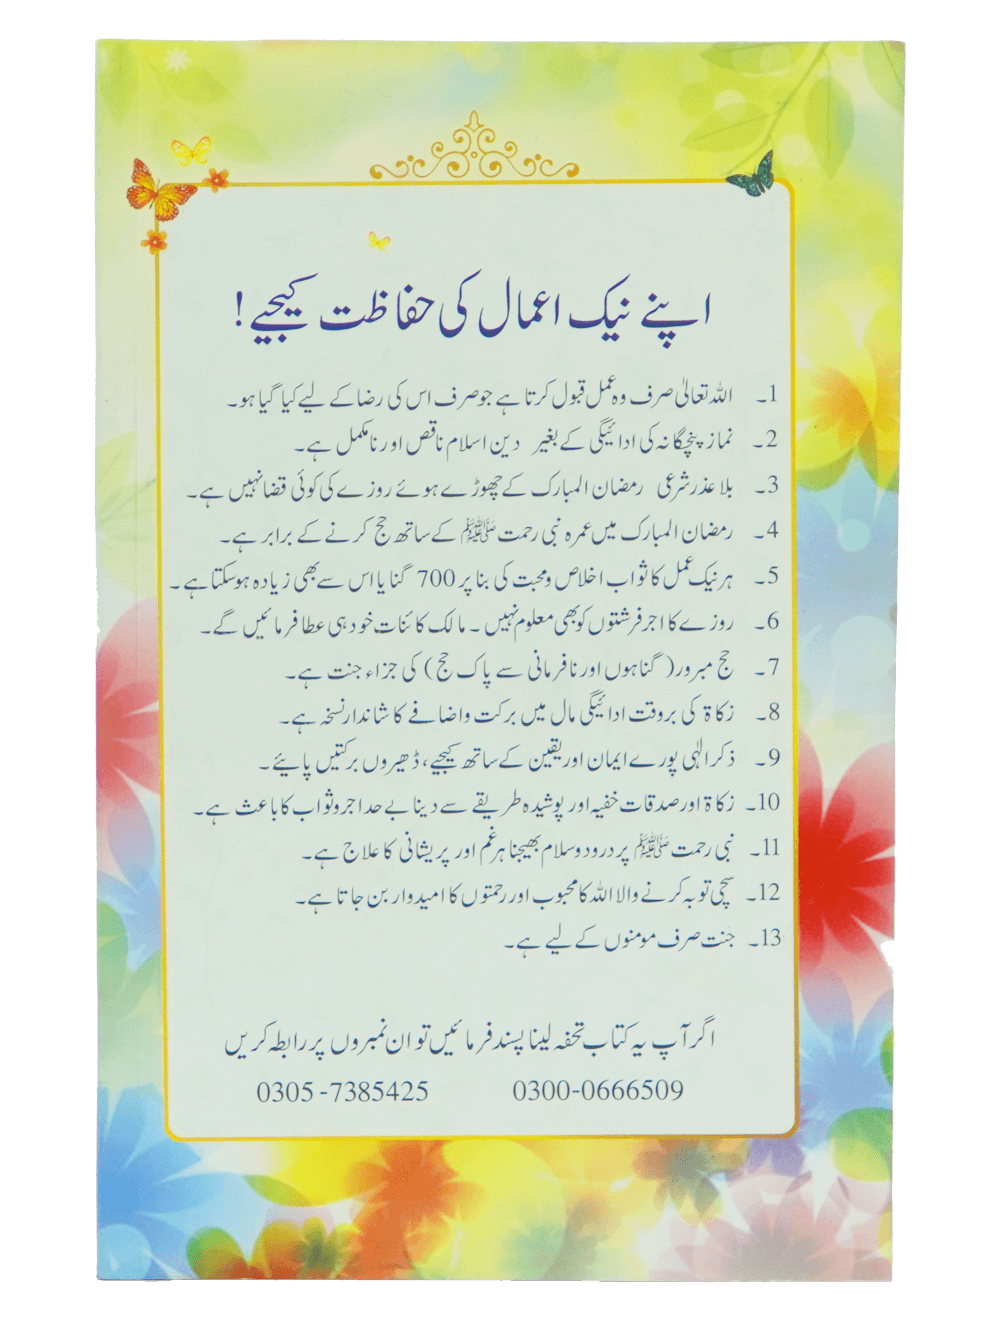 اپنے نیک اعمال کی حفاظت کیجیے!
1۔ اللہ تعالیٰ صرف وہ عمل قبول کرتا ہے جو صرف اس کی رضا کے لیے کیا گیا ہو۔
2۔ نماز پنچگانہ کی ادائیگی کے بغیر دین اسلام ناقص اور نامکمل ہے۔
3۔ بلا عذر شرعی رمضان المبارک کے چھوڑے ہوئے روزے کی کوئی قضا نہیں ہے۔
4۔ رمضان المبارک میں عمرہ نبی رحمت ﷺ کے ساتھ حج کرنے کے برابر ہے۔
5۔ ہر نیک عمل کا ثواب اخلاص و محبت کی بنا پر 700 گنا یا اس سے بھی زیادہ ہوسکتا ہے۔
6۔ روزے کا اجر فرشتوں کو بھی معلوم نہیں۔ مالک کائنات خود ہی عطا فرمائیں گے۔
7۔ حج مبرور (گناہوں اور نافرمانی سے پاک حج) کی جزاء جنت ہے۔
8۔ زکاۃ کی بروقت ادائیگی مال میں برکت واضافے کا شاندار نسخہ ہے۔
9۔ ذکر الٰہی پورے ایمان اور یقین کے ساتھ کیجیے، ڈھیروں برکتیں پائیے۔
10۔ زکاۃ اور صدقات خفیہ اور پوشیدہ طریقے سے دینا بے حد اجر و ثواب کا باعث ہے۔
11۔ نبی رحمت ﷺ پر درود وسلام بھیجنا ہر غم اور پریشانی کا علاج ہے۔
12۔ سچی توبہ کرنے والا اللہ کا محبوب اور رحمتوں کا امیدوار بن جاتا ہے۔
13۔ جنت صرف مومنوں کے لیے ہے۔
اگر آپ یہ کتاب تحفہ لینا پسند فرمائیں تو ان نمبروں پر رابطہ کریں
0305-7385425 0300-0666509